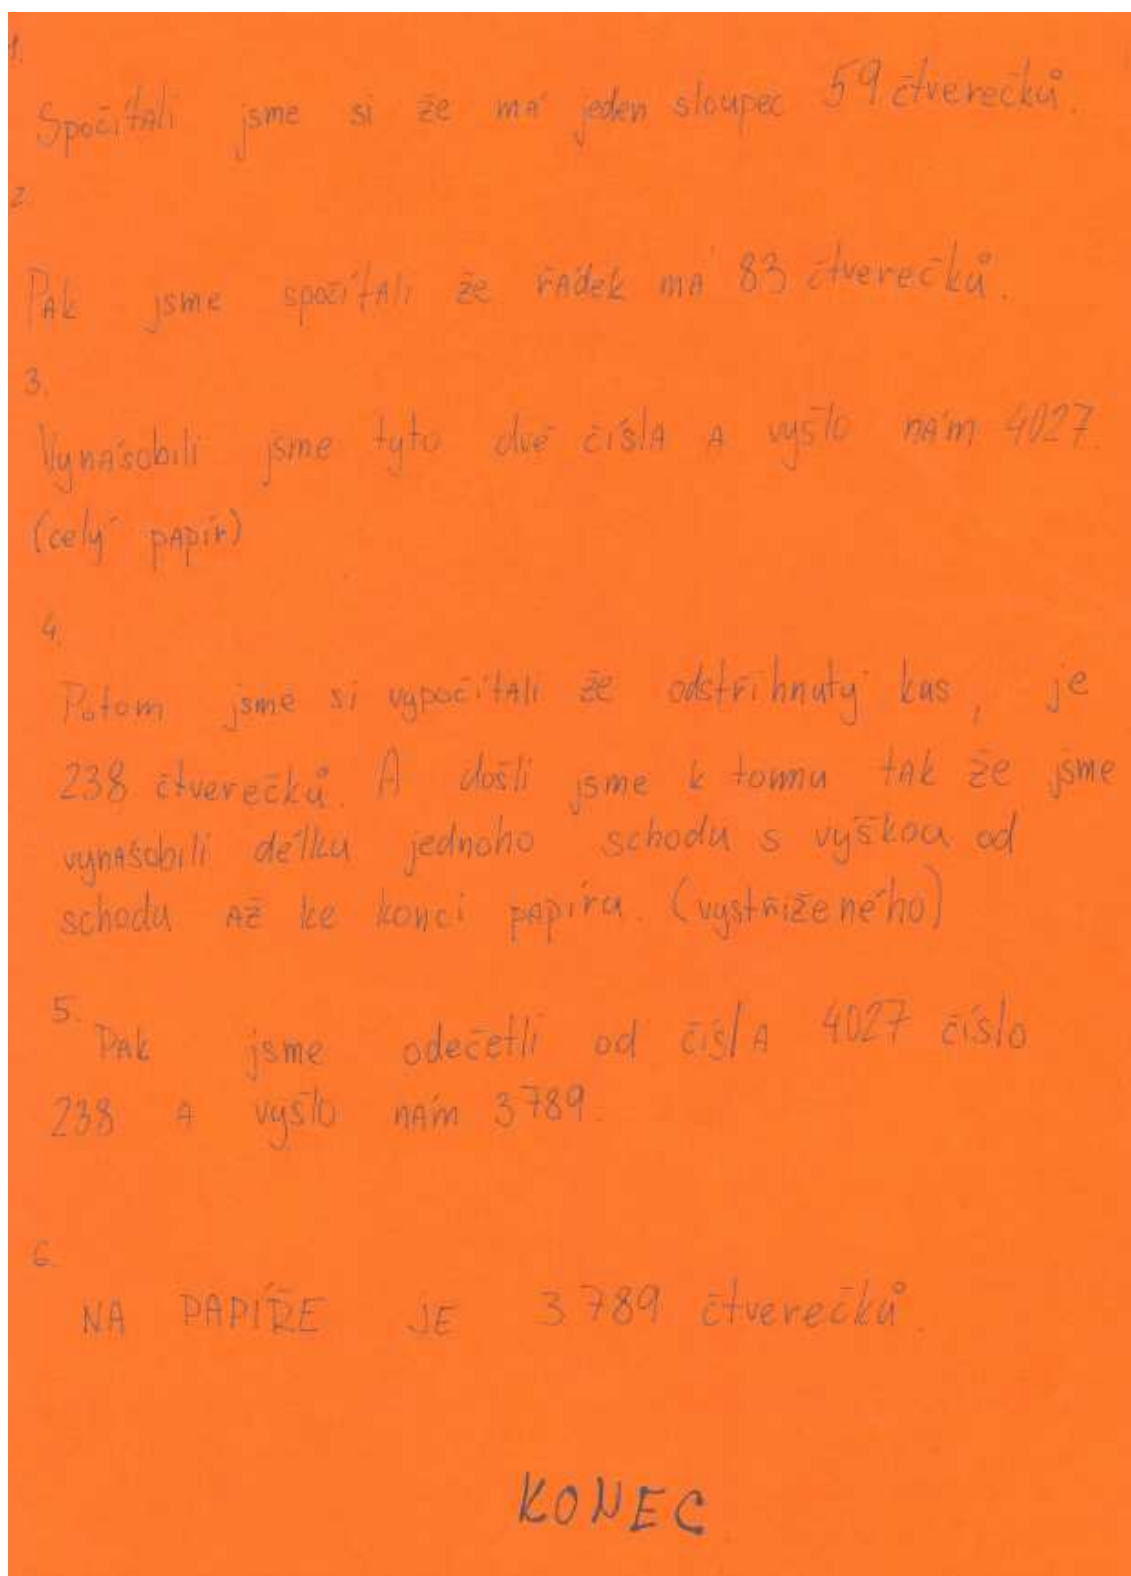 1.
Spočítali jsme si že má jeden sloupec 59 čtverečků.
2.
Pak jsme spočítali že řádek má 83 čtverečků.
3.
Vynásobili jsme tyto dvě čísla a vyšlo nám 4027.
(celý papír)
4.
Potom jsme si vypočítali že odstřihnutý kus, je
238 čtverečků. A došli jsme k tomu tak že jsme
vynásobili délku jednoho schodu s výškou od
schodu až ke konci papíru. (vystřiženého)
5.
Pak jsme odečetli od čísla 4027 číslo
238 a vyšlo nám 3789.
6.
NA PAPÍŘE JE 3789 čtverečků.
KONEC